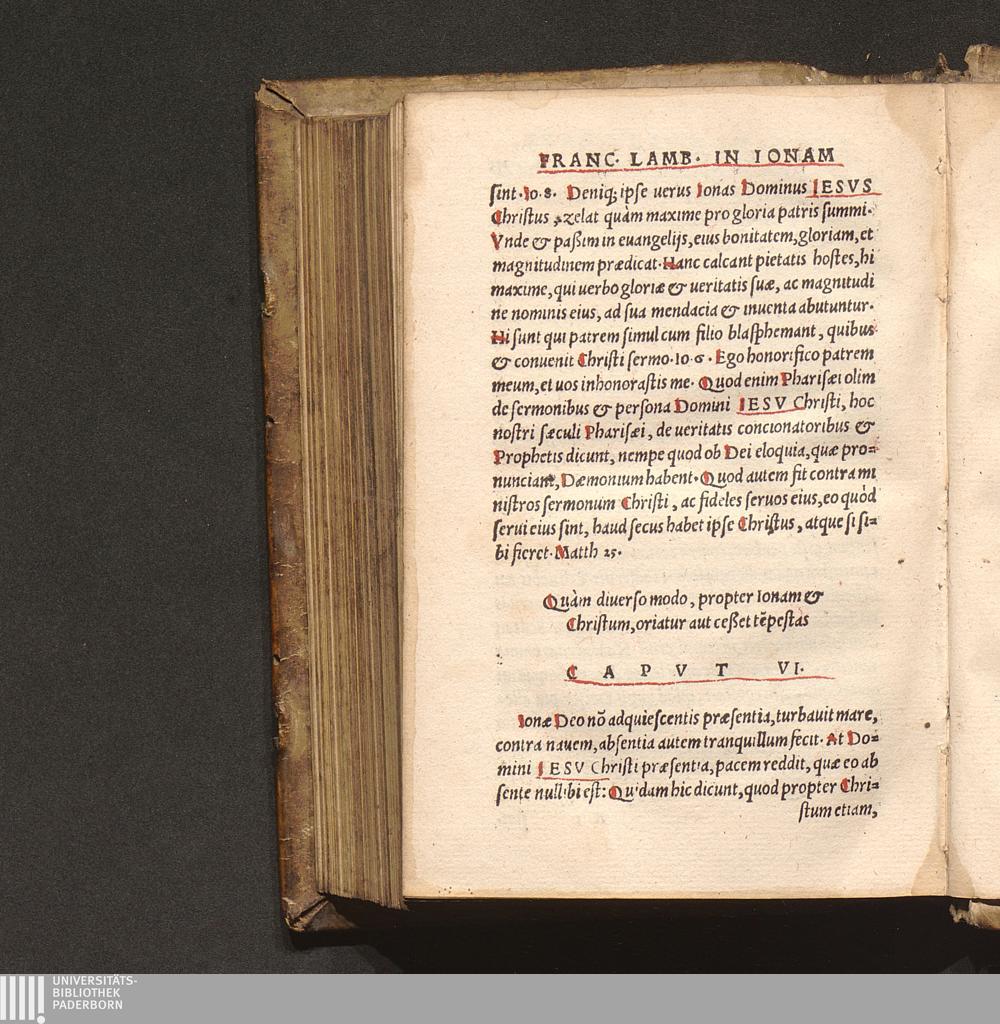 FRANC. LAMB. IN IONAM
sint. Io. 8. Deniq; ipse uerus Ionas Dominus IESVS
Christus, zelat quàm maxime pro gloria patris summi.
Vnde & paßim in euangelijs, eius bonitatem, gloriam, et
magnitudinem prædicat. Hanc calcant pietatis hostes, hi
maxime, qui uerbo gloriæ & ueritatis suæ, ac magnitudi
ne nominis eius, ad sua mendacia & inuenta abutuntur.
Hi sunt qui patrem simul cum filio blasphemant, quibus
& conuenit Christi sermo. Io. 6. Ego honorifico patrem
meum, et uos inhonorastis me. Quod enim Pharisæi olim
de sermonibus & persona Domini IESV Christi, hoc
nostri sæculi Pharisæi, de ueritatis concionatoribus &
Prophetis dicunt, nempe quod ob Dei eloquia, quæ pro=
nunciant, Dæmonium habent. Quod autem fit contra mi
nistros sermonum Christi, ac fideles seruos eius, eo quòd
serui eius sint, haud secus habet ipse Christus, atque si si=
bi fieret. Matth 25.
Quàm diuerso modo, propter Ionam &
Christum, oriatur aut ceßet tẽpestas
CAPVT VI.
Ionæ Deo nõ adquiescentis præsentia, turbauit mare,
contra nauem, absentia autem tranquillum fecit. At Do=
mini IESV Christi præsentia, pacem reddit, quæ eo ab
sente nullibi est: Quidam hic dicunt, quod propter Chri=
stum etiam,
UNIVERSITÄTS-
BIBLIOTHEK
PADERBORN